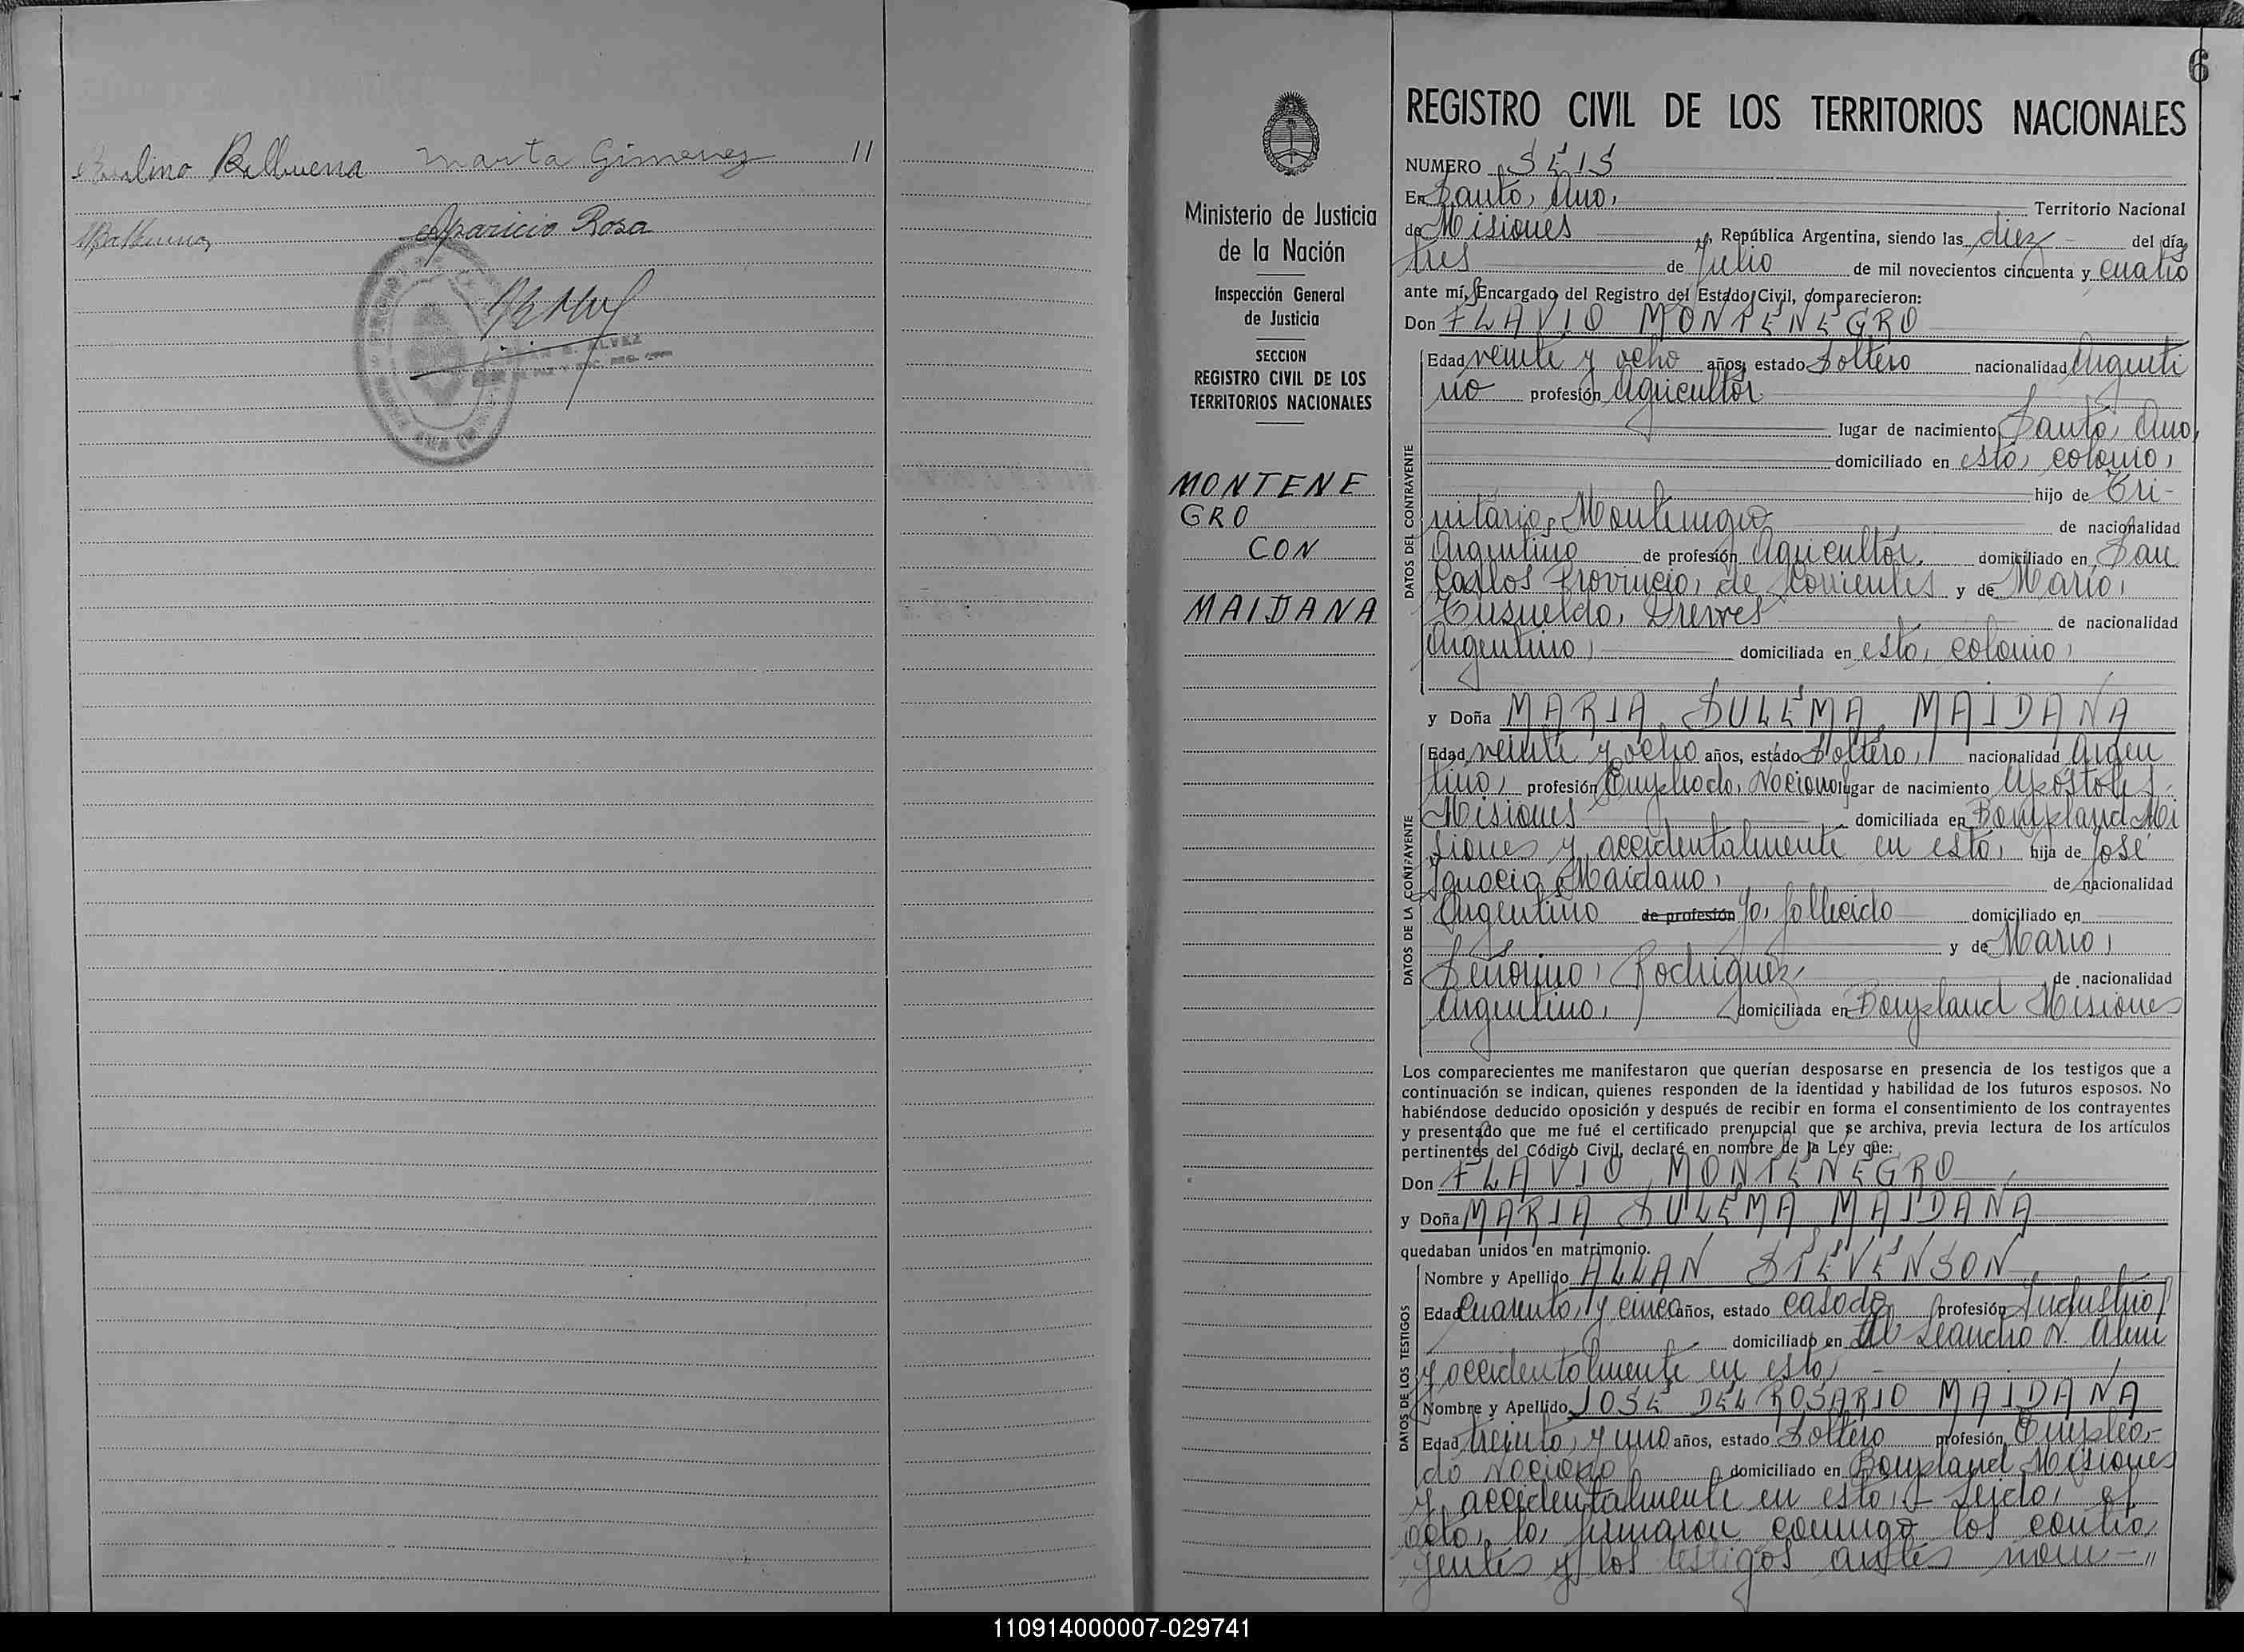 Paulino Balbuena Marta Gimenez 11
Balbuena Aparicio Rosa
6
Ministerio de Justicia
de la Nación
Inspección General
de Justicia
SECCION
REGISTRO CIVIL DE LOS
TERRITORIOS NACIONALES
MONTENE
GRO
CON
MAIDANA
REGISTRO CIVIL DE LOS TERRITORIOS NACIONALES
NUMERO SEIS
En Santa Ana, Territorio Nacional
de Misiones República Argentina, siendo las diez del día
tres de Julio de mil novecientos cincuenta y cuatro
ante mí, Encargado del Registro del Estado Civil, comparecieron:
Don FLAVIO MONTENEGRO
DATOS DEL CONTRAYENTE
Edad veinte y ocho años, estado Soltero nacionalidad Argenti
no profesión Agricultor
lugar de nacimiento Santa Ana,
domiciliado en esta colonia,
hijo de Tri-
nitario Montenegro de nacionalidad
Argentino de profesión Agricultor, domiciliado en San
Carlos Provincia de Corrientes y de Maria
Drewes de nacionalidad
Argentina, domiciliada en esta colonia
y Doña MARIA SULEMA MAIDANA
DATOS DE LA CONTRAYENTE
Edad veinte y ocho años, estado Soltera, nacionalidad Argen
tina, profesión Empleada Nacional lugar de nacimiento Apóstoles
Misiones domiciliada en Bonpland Mi
siones y accidentalmente en esta, hija de José
Ignacio Maidana, de nacionalidad
Argentino de profesión ya fallecido domiciliado en
y de Maria
Señorina Rodriguez, de nacionalidad
Argentina, domiciliada en Bonpland Misiones
Los comparecientes me manifestaron que querían desposarse en presencia de los testigos que a
continuación se indican, quienes responden de la identidad y habilidad de los futuros esposos. No
habiéndose deducido oposición y después de recibir en forma el consentimiento de los contrayentes
y presentado que me fué el certificado prenupcial que se archiva, previa lectura de los artículos
pertinentes del Código Civil, declaré en nombre de la Ley que:
Don FLAVIO MONTENEGRO
y Doña MARIA SULEMA MAIDANA
quedaban unidos en matrimonio.
DATOS DE LOS TESTIGOS
Nombre y Apellido ALLAN STEVENSON
Edad Cuarenta y cinco años, estado casado profesión Industrial
domiciliado en Leandro N. Alem
y accidentalmente en esta,
Nombre y Apellido JOSE DEL ROSARIO MAIDANA
Edad treinta y uno años, estado Soltero profesión Emplea-
do Nacional domiciliado en Bonpland Misiones
y accidentalmente en esta, Leida el
acta, la firmaron conmigo los contra
yentes y los testigos antes nom-"
110914000007-029741